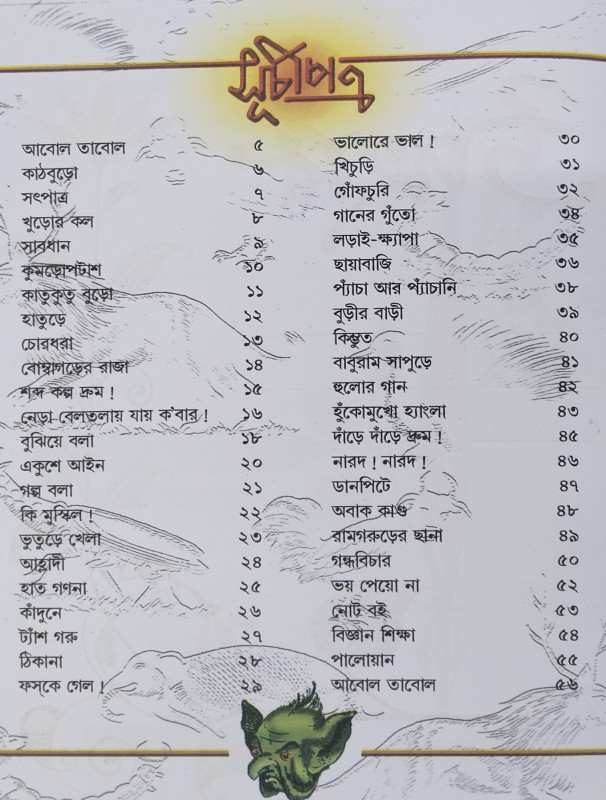 সূচীপত্র
আবোল তাবোল ৫
কাঠবুড়ো ৬
সৎপাত্র ৭
খুড়োর কল ৮
সাবধান ৯
কুমড়োপটাশ ১০
কাতুকুতু বুড়ো ১১
হাতুড়ে ১২
চোরধরা ১৩
বোম্বাগড়ের রাজা ১৪
শব্দ কল্প দ্রুম ! ১৫
নেড়া বেলতলায় যায় ক'বার ! ১৬
বুঝিয়ে বলা ১৮
একুশে আইন ২০
গল্প বলা ২১
কি মুস্কিল ! ২২
ভুতুড়ে খেলা ২৩
আহ্লাদী ২৪
হাত গণনা ২৫
কাঁদুনে ২৬
ট্যাঁশ গরু ২৭
ঠিকানা ২৮
ফসকে গেল ! ২৯
ভালোরে ভাল ! ৩০
খিচুড়ি ৩১
গোঁফচুরি ৩২
গানের গুঁতো ৩৪
লড়াই-ক্ষ্যাপা ৩৫
ছায়াবাজি ৩৬
প্যাঁচা আর প্যাঁচানি ৩৮
বুড়ীর বাড়ী ৩৯
কিম্ভুত ৪০
বাবুরাম সাপুড়ে ৪১
হুলোর গান ৪২
হুঁকোমুখো হ্যাংলা ৪৩
দাঁড়ে দাঁড়ে দ্রুম ! ৪৫
নারদ ! নারদ ! ৪৬
ডানপিটে ৪৭
অবাক কাণ্ড ৪৮
রামগরুড়ের ছানা ৪৯
গন্ধবিচার ৫০
ভয় পেয়ো না ৫২
নোট বই ৫৩
বিজ্ঞান শিক্ষা ৫৪
পালোয়ান ৫৫
আবোল তাবোল ৫৬